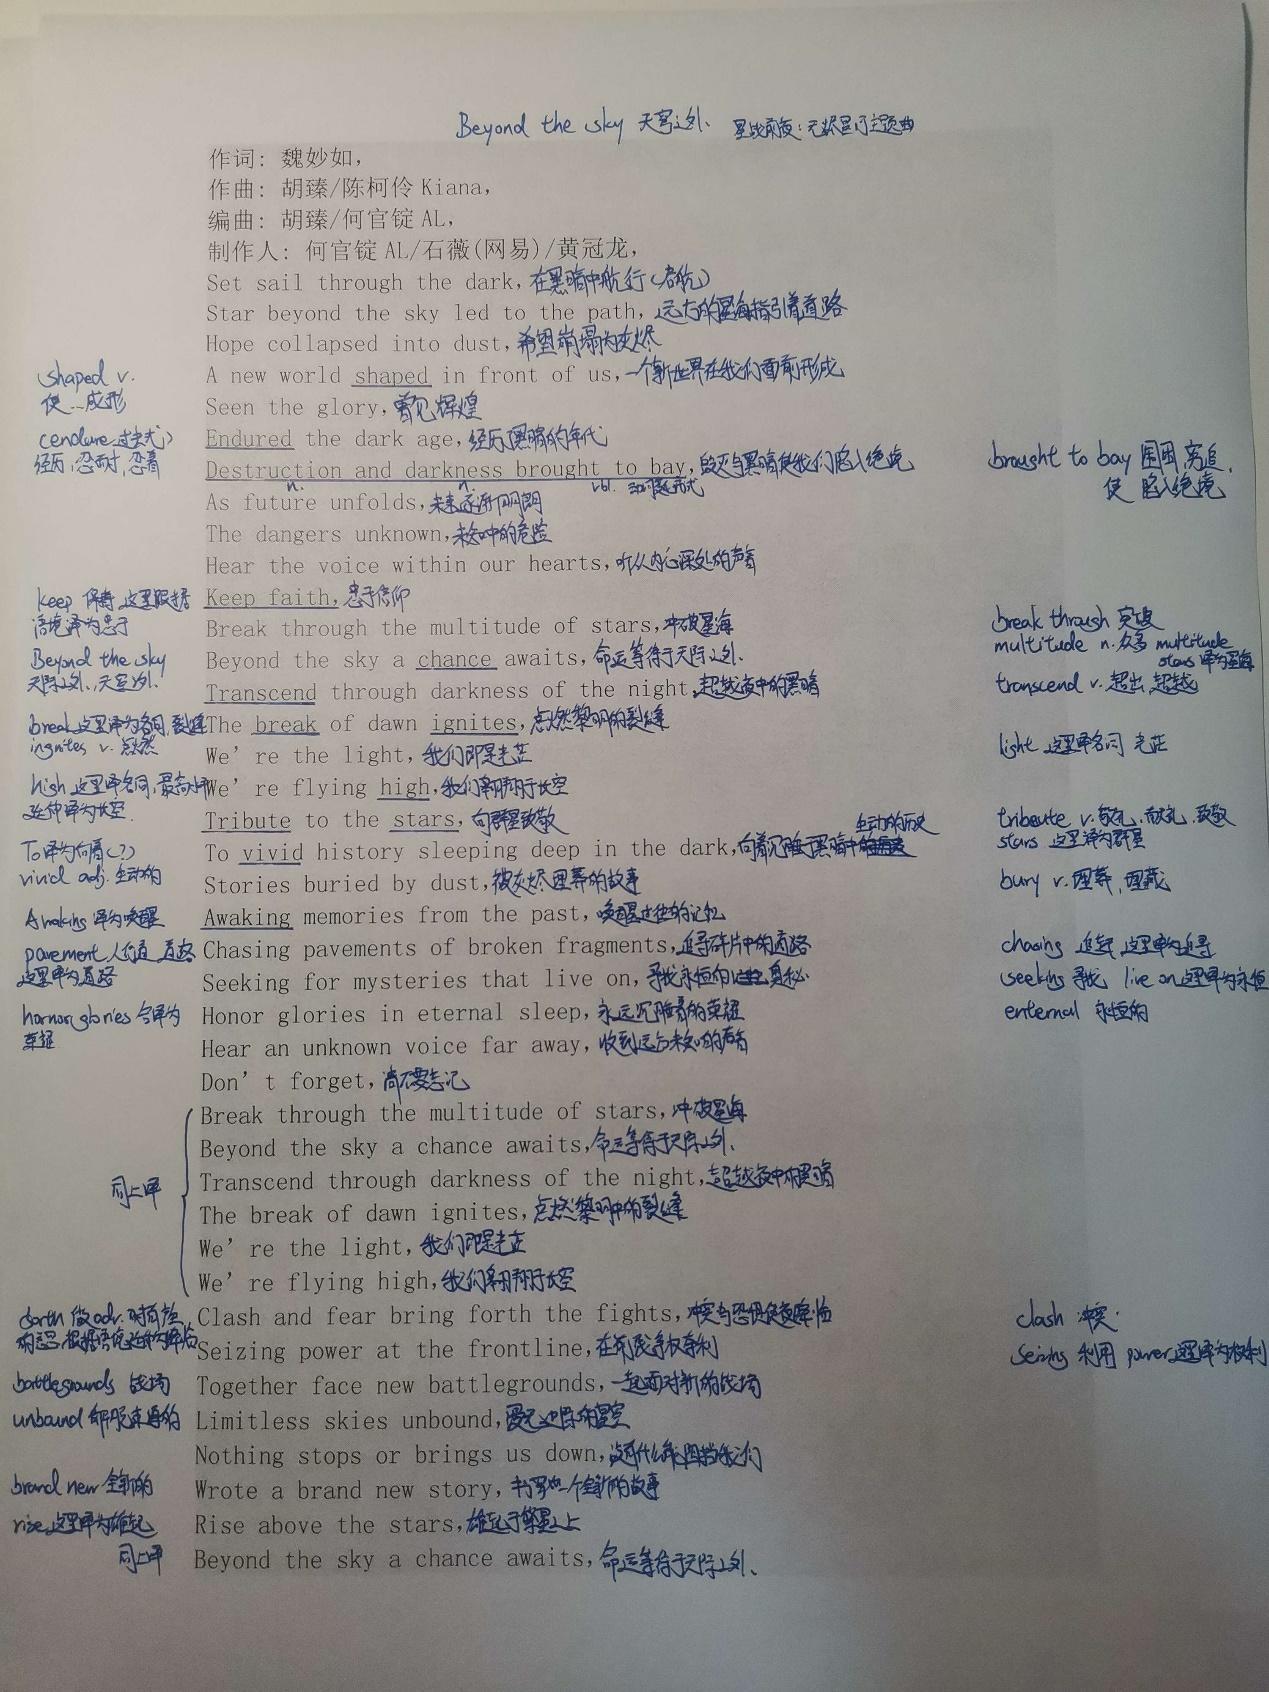 Beyond the sky 天穹之外、 星战前夜：无烬星河主题曲
作词: 魏妙如,
作曲: 胡臻/陈柯伶 Kiana,
编曲: 胡臻/何官锭 AL,
制作人: 何官锭 AL/石薇(网易)/黄冠龙,
Set sail through the dark, 在黑暗中航行(启航)
Star beyond the sky led to the path, 远方的星海指引着道路
Hope collapsed into dust, 希望崩塌为灰烬
shaped v. A new world shaped in front of us, 一个新世界在我们面前形成
使...成形 Seen the glory, 曾见辉煌
(endure过去式) Endured the dark age, 经历黑暗的年代
经历,忍耐,忍着 Destruction and darkness brought to bay, 毁灭与黑暗使我们陷入绝境 brought to bay 围困,穷追,
n. n. vbl. 动词过去形式 使 陷入绝境
As future unfolds, 未来逐渐开朗
The dangers unknown, 未知中的危险
Hear the voice within our hearts, 听从内心深处的声音
keep 保持,这里根据 Keep faith, 忠于信仰
语境译为忠于 Break through the multitude of stars, 冲破星海 break through 突破
multitude n.众多 multitude
Beyond the sky Beyond the sky a chance awaits, 命运等待于天际之外、 stars 译为星海
天际之外,天空之外、 Transcend through darkness of the night, 超越夜中的黑暗 transcend v. 超出,超越
break这里译为名词,裂缝 The break of dawn ignites, 点燃黎明的裂缝
ingnites v. 点燃 We’re the light, 我们即是光芒 light 这里译名词 光芒
high 这里译名词, We’re flying high, 我们翱翔于长空
延伸译为长空. Tribute to the stars, 向群星致敬 tribute v. 敬礼,献礼,致敬
生动的历史 stars 这里译为群星
To译为向着(?) To vivid history sleeping deep in the dark, 向着沉睡于黑暗中
vivid adj.生动的 Stories buried by dust, 被灰烬埋葬的故事 bury v. 埋葬,埋藏
Awaking 译为唤醒 Awaking memories from the past, 唤醒过往的记忆
pavement 人行道,道路 Chasing pavements of broken fragments, 追寻碎片中的道路 chasing 追赶 这里译为追寻
这里译为道路 Seeking for mysteries that live on, 寻找永恒的 奥秘 seeking 寻找 live on 这里译为永恒
honor,glories 合译为 Honor glories in eternal sleep, 永远沉睡着的荣耀 enternal 永恒的
荣耀 Hear an unknown voice far away, 收到远方未知的声音
Don’t forget, 请不要忘记
Break through the multitude of stars, 冲破星海
Beyond the sky a chance awaits, 命运等待于天际之外、
同上译 Transcend through darkness of the night, 超越夜中的黑暗
The break of dawn ignites, 点燃黎明中的裂缝
We’re the light, 我们即是光芒
We’re flying high, 我们翱翔于长空
forth 做adv. Clash and fear bring forth the fights, 冲突与恐惧使 降临 clash 冲突.
Seizing power at the frontline, 在前线争权夺利 seizing 利用 power这里译为权利
battlegrounds 战场 Together face new battlegrounds, 一起面对新的战场
unbound 解脱束缚的 Limitless skies unbound, 漫无边际的星空
Nothing stops or brings us down, 没有什么能阻挡我们
brand new 全新的 Wrote a brand new story, 书写出一个全新的故事
rise 这里译为雄起 Rise above the stars, 雄起于繁星之上
同上译 Beyond the sky a chance awaits, 命运等待于天际之外、